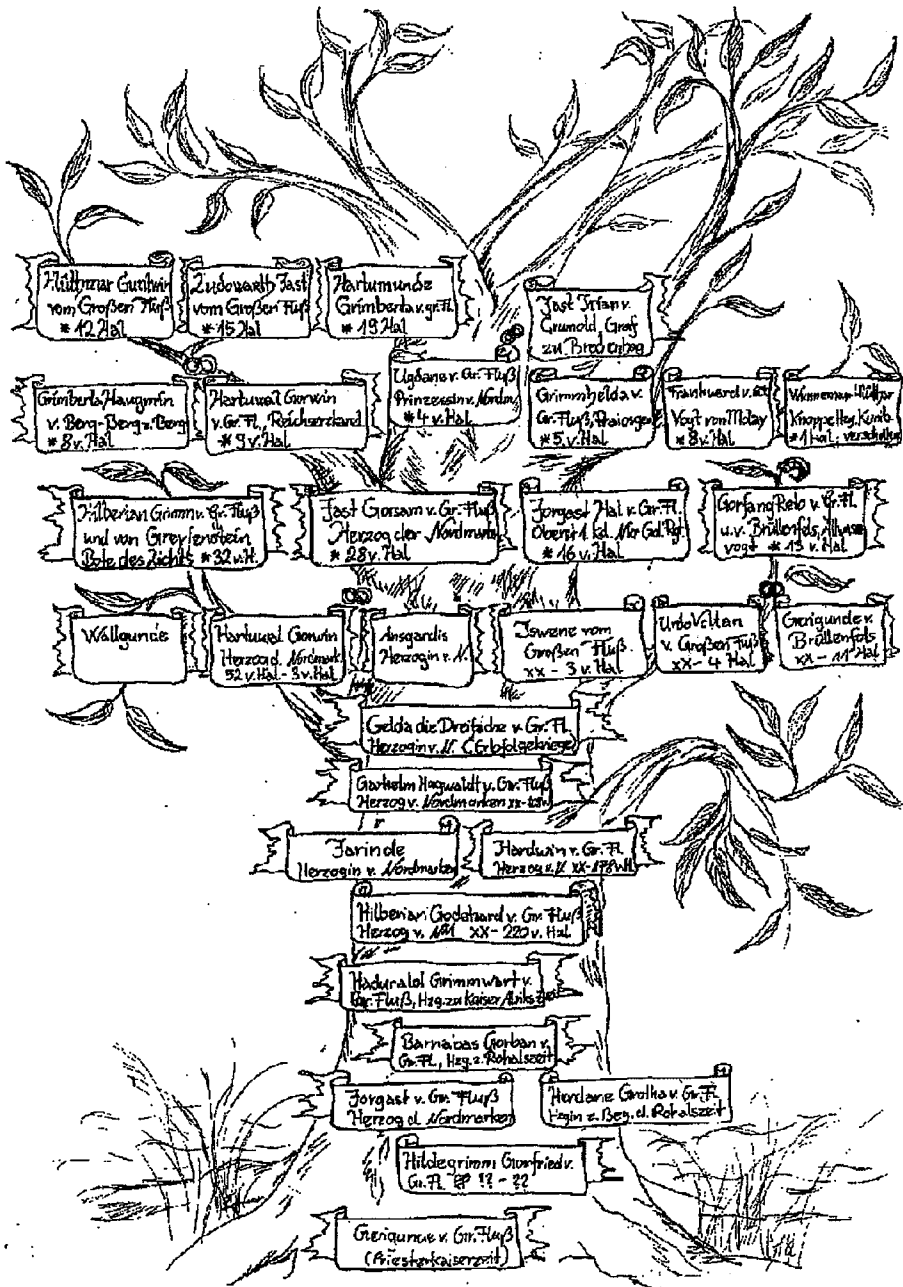 Gunlwin
vom Großen Fluß
* 12 Hal
Ludowarth Jast
vom Großen Fluß
* 15 Hal
Hartumunde
Grimberta v. gr. Fl.
* 19 Hal
Jast Irian v.
Crunold, Graf
zu
Ugdane v. Gr. Fluß
Prinzessin v. Nordm.
* 4 v. Hal
Grimberta Haugmin
v. Berg-Berg z. Berg
* 8 v. Hal
Hartuwal Gorwin
v. Gr. Fl., Reichserzkanzl
* 9 v. Hal
Grimmhelda v.
Gr. Fluß,
* 5 v. Hal
Frankward v.
Vogt von
* 8 v. Hal
* 1 Hal, verschollen
Hilberian Grimm v. Gr. Fluß
und von Greyfenstein
Bote des Lichts * 32 v. H.
Jast Gorsam v. Gr. Fluß
Herzog der Nordmarken
* 28 v. Hal
Jorgast Hal v. Gr. Fl.
Oberst
* 16 v. Hal
Gorfang Reto v. Gr. Fl.
u. v. Brüllenfels,
vogt * 13 v. Hal
Wallgunde
Hartuwal Gorwin
Herzog d. Nordmark.
52 v. Hal - 3 v. Hal
Ansgardis
Herzogin v. N.
Iswene vom
Großen Fluß
xx - 3 v. Hal
v. Großen Fluß
xx - 4 Hal
Gerigunde v.
Brüllenfels
xx - 11 Hal
Gelda die Dreifache v. Gr. Fl.
Herzogin v. N. (Erbfolgekriege
Garhelm Hagwaldt v. Gr. Fluß
Herzog v. Nordmarken
Jarinde
Herzogin v. Nordmarken
Hardwin v. Gr. Fl.
Herzog v. N. xx-178 v. H.
Hilberian Godehard v. Gr. Fluß
Herzog v. xx - 220 v. Hal
Haduralol Grimmwart v.
Gr. Fluß, Hzg. zu Kaiser
Barnabas Gorban v.
Gr. Fl., Hzg. z. Rohalszeit
Jorgast v. Gr. Fluß
Herzog d. Nordmarken
Herdane Grolha v. Gr. Fl.
Hzgin z. Beg. d. Rohalszeit
Hildegrimm Gorfried v.
Gr. Fl. ?? - ??
Gerigunde v. Gr. Fluß
(Priesterkaiserzeit)